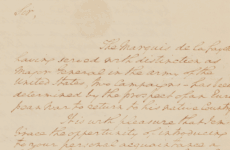 Sir,
The Marquis de la Fayette
having served with distinction as
Major General in the army of the
United States, two Campaigns - has been
determined by the prospect of an Euro
pean war to return to his native Country
It is with pleasure that I em
brace the opportunity of introducing
to your personal acquaintance a